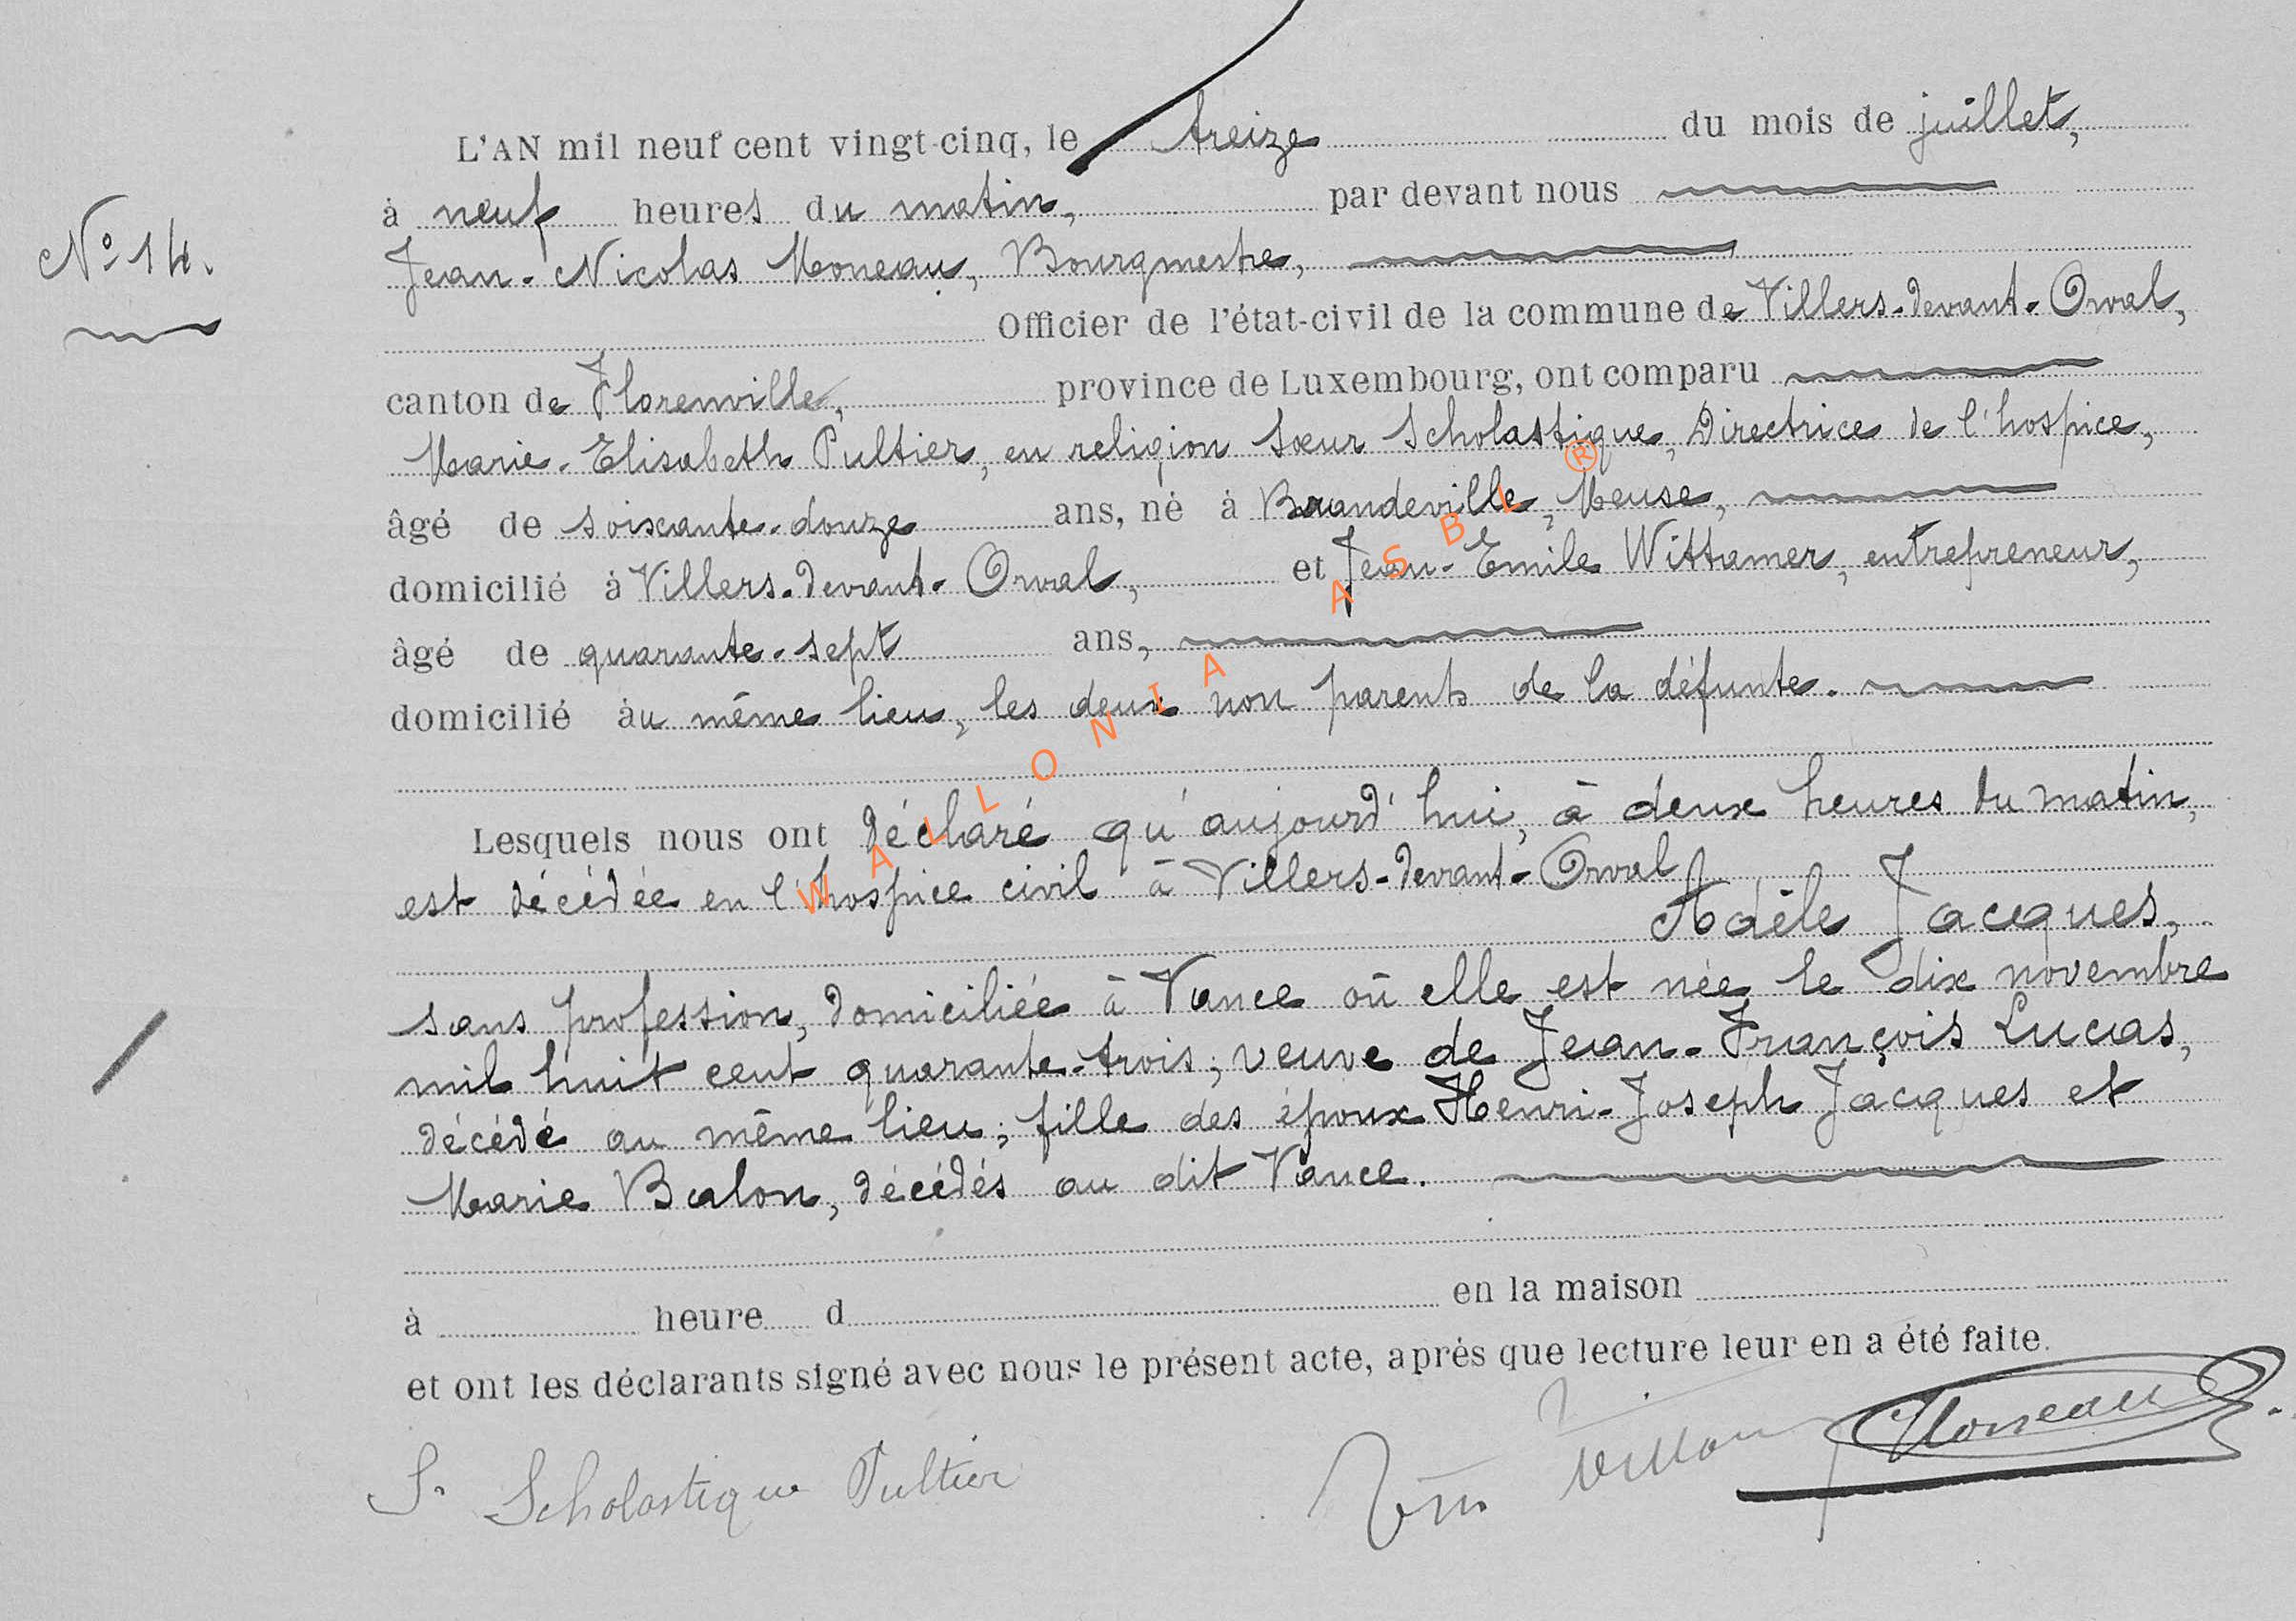 L'AN mil neuf cent vingt-cinq, le treize du mois de juillet,
à neuf heures du matin, par devant nous
N° 14.
Jean-Nicolas Moneau, Bourgmestre,
Officier de l'état-civil de la commune de Villers-devant-Orval,
canton de Florenville, province de Luxembourg, ont comparu
Marie-Elisabeth Pultier, en religion sœur Scholastique, Directrice de l'hospice,
âgé de soixante-douze ans, né à Brandeville, Meuse,
domicilié à Villers-devant-Orval, et Jean-Emile Wittamer, entrepreneur,
âgé de quarante-sept ans,
domicilié au même lieu, les deux non parents de la défunte.
Lesquels nous ont déclaré qu'aujourd'hui, à deux heures du matin,
est décédée en l'hospice civil à Villers-devant-Orval
Adèle Jacques,
sans profession, domiciliée à Vance où elle est née le dix novembre
mil huit cent quarante-trois; veuve de Jean-François Lucas,
décédé au même lieu; fille des époux Henri-Joseph Jacques et
Marie Balon, décédés au dit Vance.
à heure d en la maison
et ont les déclarants signé avec nous le présent acte, après que lecture leur en a été faite.
S. Scholastique Pultier
Moneau
WALLONIA ASBL ®